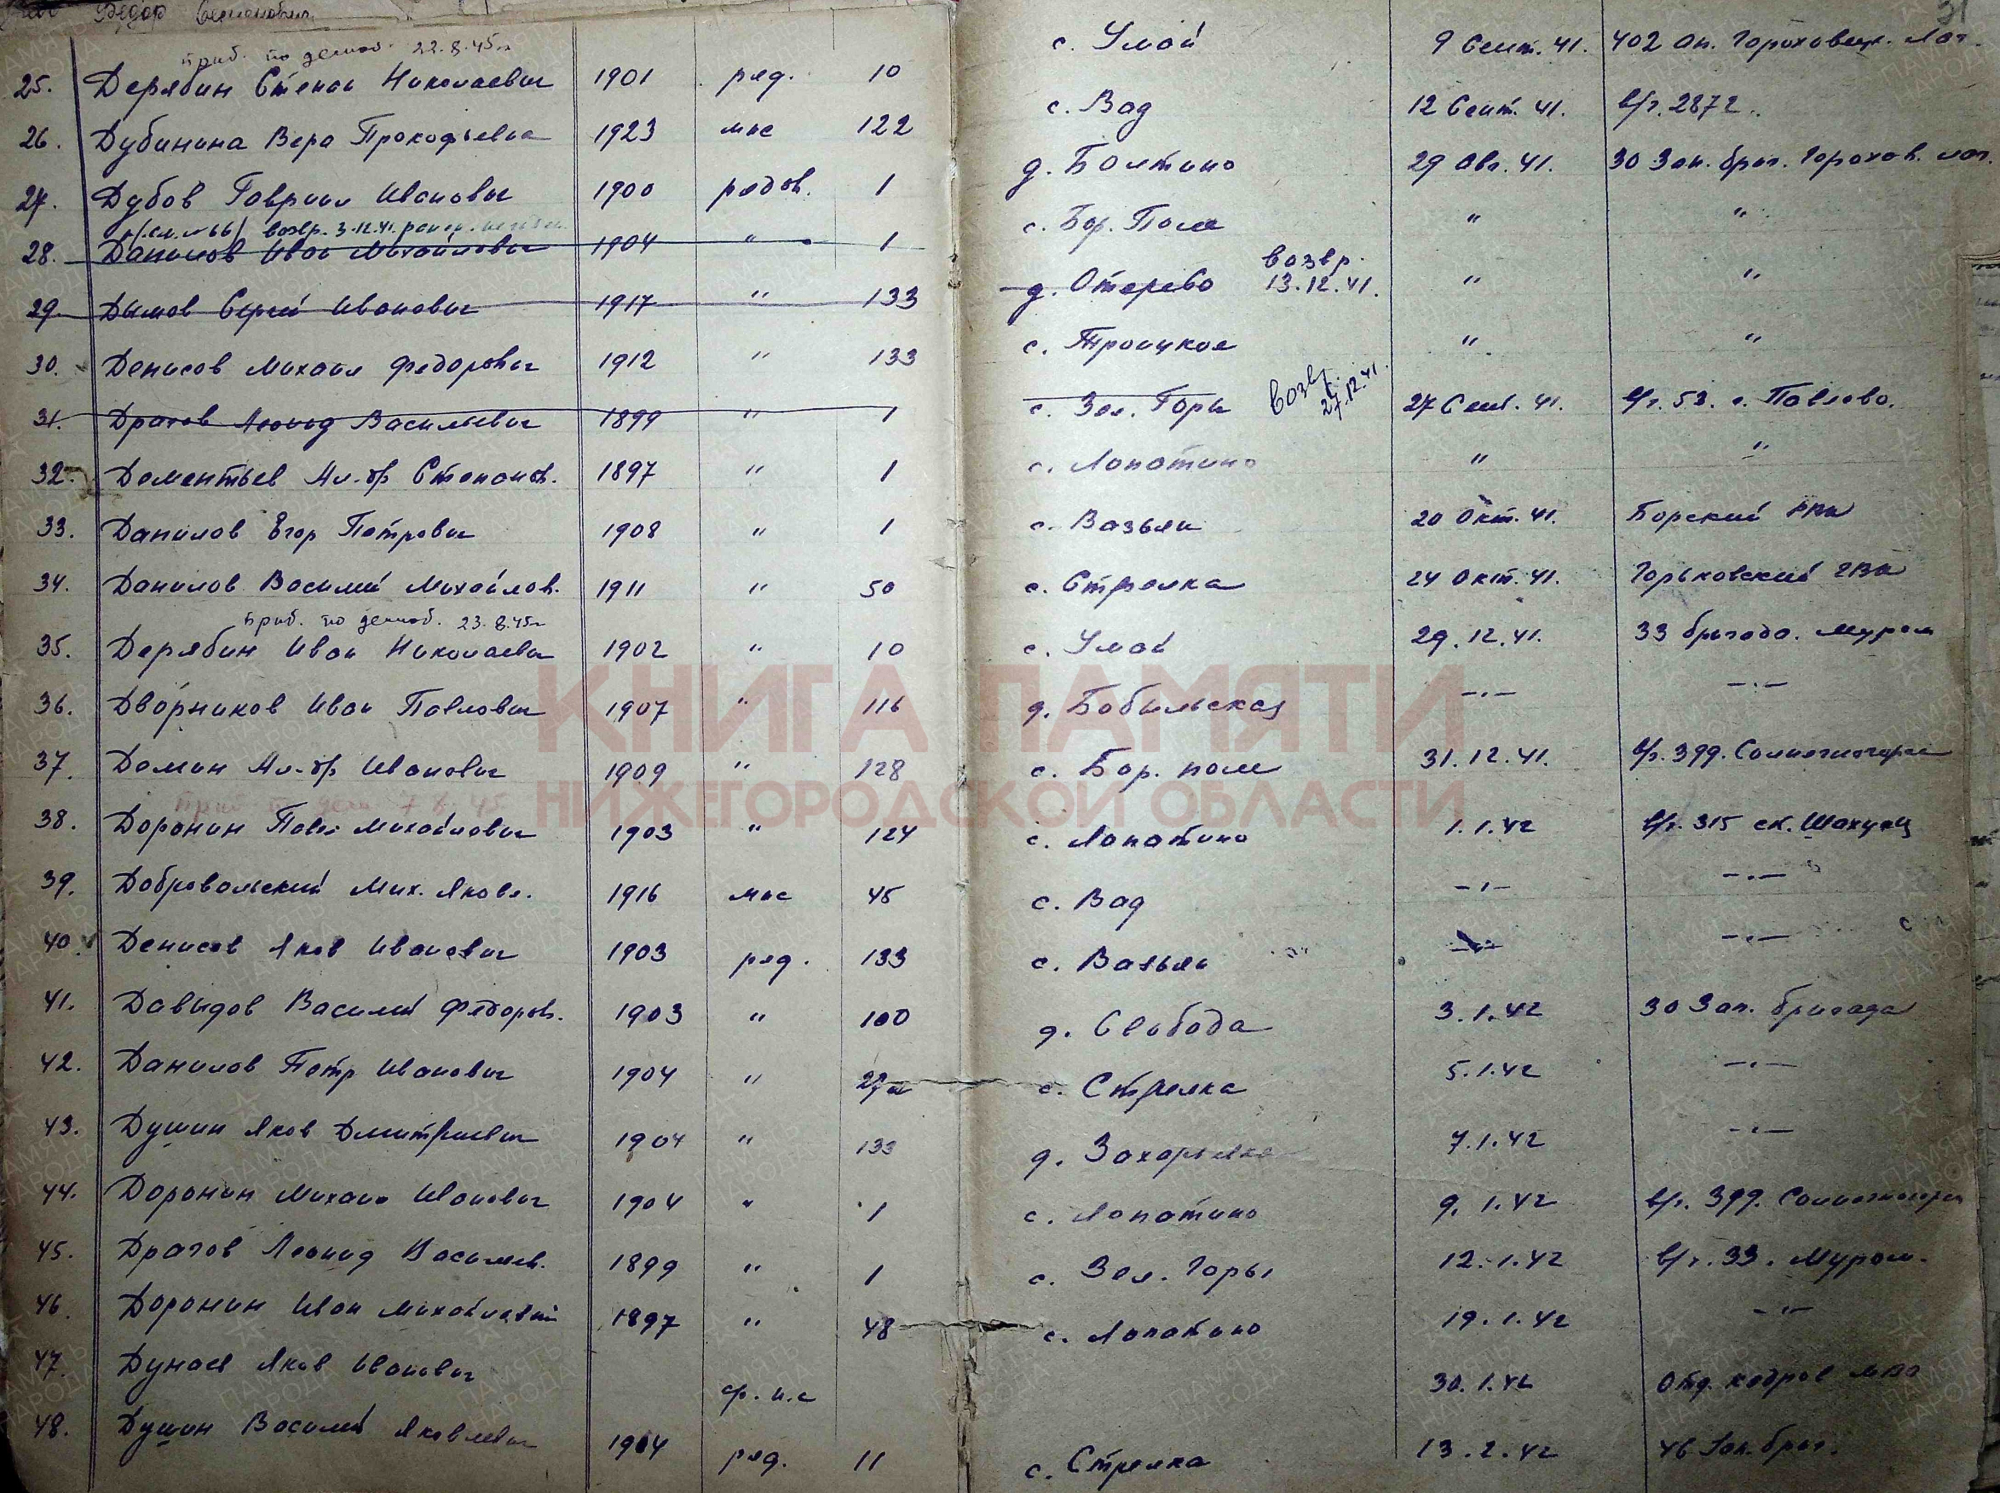 Федор Семенович 31
приб. по демоб. 22.8.45г
25. Дерябин Степан Николаевич 1901 ряд. 10 с. Умай 9 Сент. 41. 402 ап. Гороховецк. лаг.
26. Дубинина Вера Прокофьевна 1923 мнс 122 с. Вад 12 Сент. 41. в/ч. 2872.
27. Дубов Гавриил Иванович 1900 рядов. 1 д. Болтино 29 Авг. 41. 30 Зап. бриг. Горохов. лаг.
/см. № 66/ возвр. 3.12.41.
28. Данилов Иван Михайлович 1904 " 1 с. Бор. Поле " "
29. Дымов Сергей Иванович 1917 " 133 д. Отерево возвр. 13.12.41. " "
30. Денисов Михаил Федорович 1912 " 133 с. Троицкое " "
31. Драгов Леонид Васильевич 1899 " 1 с. Зел. Горы возвр. 27.12.41. 27 Сент. 41. в/ч. 53. г. Павлово.
32. Дементьев Ал-др Степанов. 1897 " 1 с. Лопатино " "
33. Данилов Егор Петрович 1908 " 1 с. Вазьян 20 Окт. 41. Борский РВК
34. Данилов Василий Михайлов. 1911 " 50 с. Стрелка 24 Окт. 41. Горьковский ГВК
приб. по демоб. 23.8.45г
35. Дерябин Иван Николаевич 1902 " 10 с. Умай 29.12.41. 33 бригада. Муром
36. Дворников Иван Павлович 1907 " 116 д. Бобыльская —"— —"—
37. Демин Ал-др Иванович 1909 " 128 с. Бор. поле 31.12.41. в/ч. 399. Солнечногорск
приб. по дем. 7 45
38. Доронин Павел Михайлович 1903 " 124 с. Лопатино 1.1.42 в/ч. 315 ст. Шахунья
39. Добровольский Мих. Яковл. 1916 мнс 45 с. Вад —"— —"—
40. Денисов Яков Иванович 1903 ряд. 133 с. Вазьян —"— —"—
41. Давыдов Василий Федоров. 1903 " 100 д. Слобода 3.1.42 30 Зап. бригада
42. Данилов Петр Иванович 1904 " с. Стрелка 5.1.42 —"—
43. Душин Яков Дмитриевич 1904 " 133 д. Захарьевка 7.1.42 —"—
44. Доронин Михаил Иванович 1904 " 1 с. Лопатино 9.1.42 в/ч. 399. Солнечногорск
45. Драгов Леонид Васильев. 1899 " 1 с. Зел. Горы 12.1.42 в/ч. 33. Муром.
46. Доронин Иван Михайлович 1897 " 48 с. Лопатино 19.1.42 —"—
47. Дунаев Яков Иванович ср. н.с 30.1.42 Отд. кадров МВО
48. Душин Василий Яковлевич 1904 ряд. 11 с. Стрелка 13.2.42 46 Зап. бриг.
КНИГА ПАМЯТИ
НИЖЕГОРОДСКОЙ ОБЛАСТИ